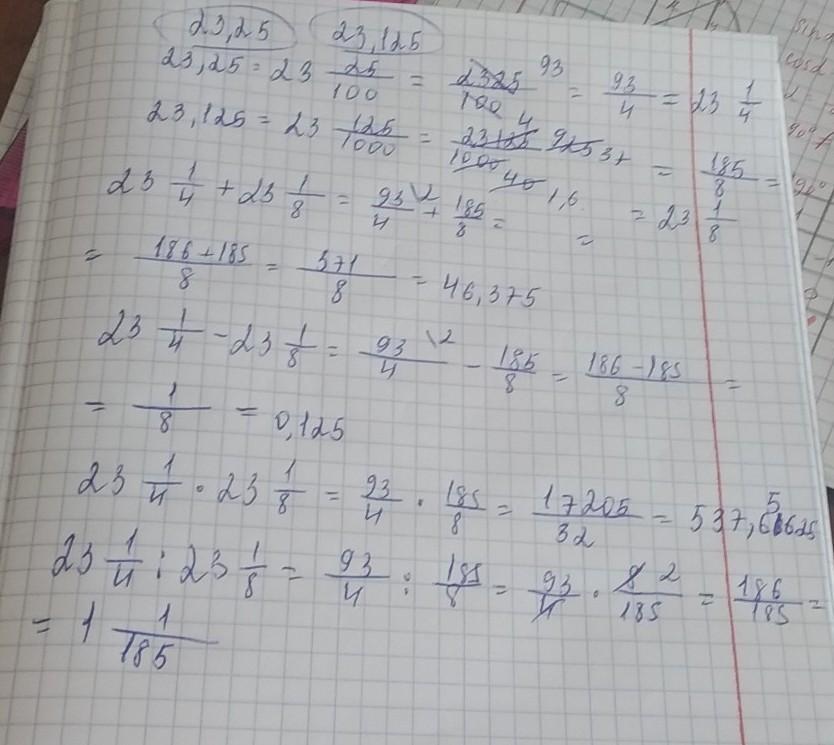 23,25 23,125
23,25 = 23 25/100 = 2325/100 93 4 = 93/4 = 23 1/4
23,125 = 23 125/1000 = 23125/1000 925 37 40 1,6 = 185/8 =
= 23 1/8
23 1/4 + 23 1/8 = 93/4 \2 + 185/8 = =
= 186+185/8 = 371/8 = 46,375
23 1/4 - 23 1/8 = 93/4 \2 - 185/8 = 186-185/8 =
= 1/8 = 0,125
23 1/4 · 23 1/8 = 93/4 · 185/8 = 17205/32 = 537,
23 1/4 : 23 1/8 = 93/4 : 185/8 = 93/4 · 8 2/185 = 186/185 =
= 1 1/185
sin
cos α